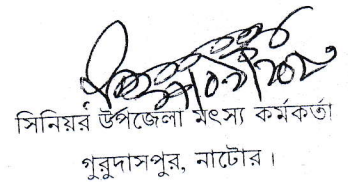 সিনিয়র উপজেলা মৎস্য কর্মকর্তা
গুরুদাসপুর, নাটোর।